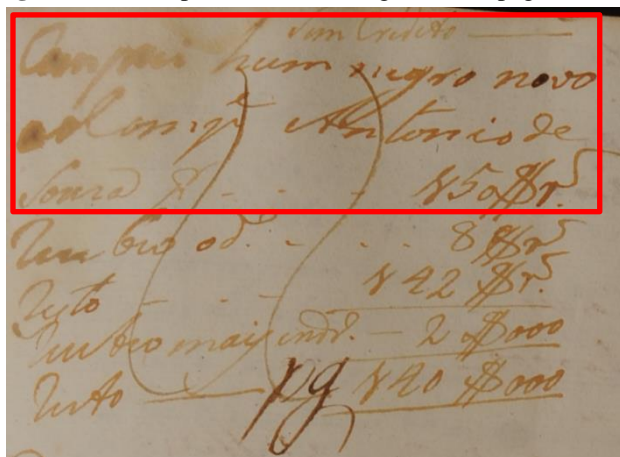 Sem Credito
Comprei hum negro novo
Antonio de
Souza pr. - - - 150$rs.
Recebeo od. - - - 8$rs.
Resto - - - 142$rs.
Recebeo mais em dr. - 2$000
Resto pg 140$000